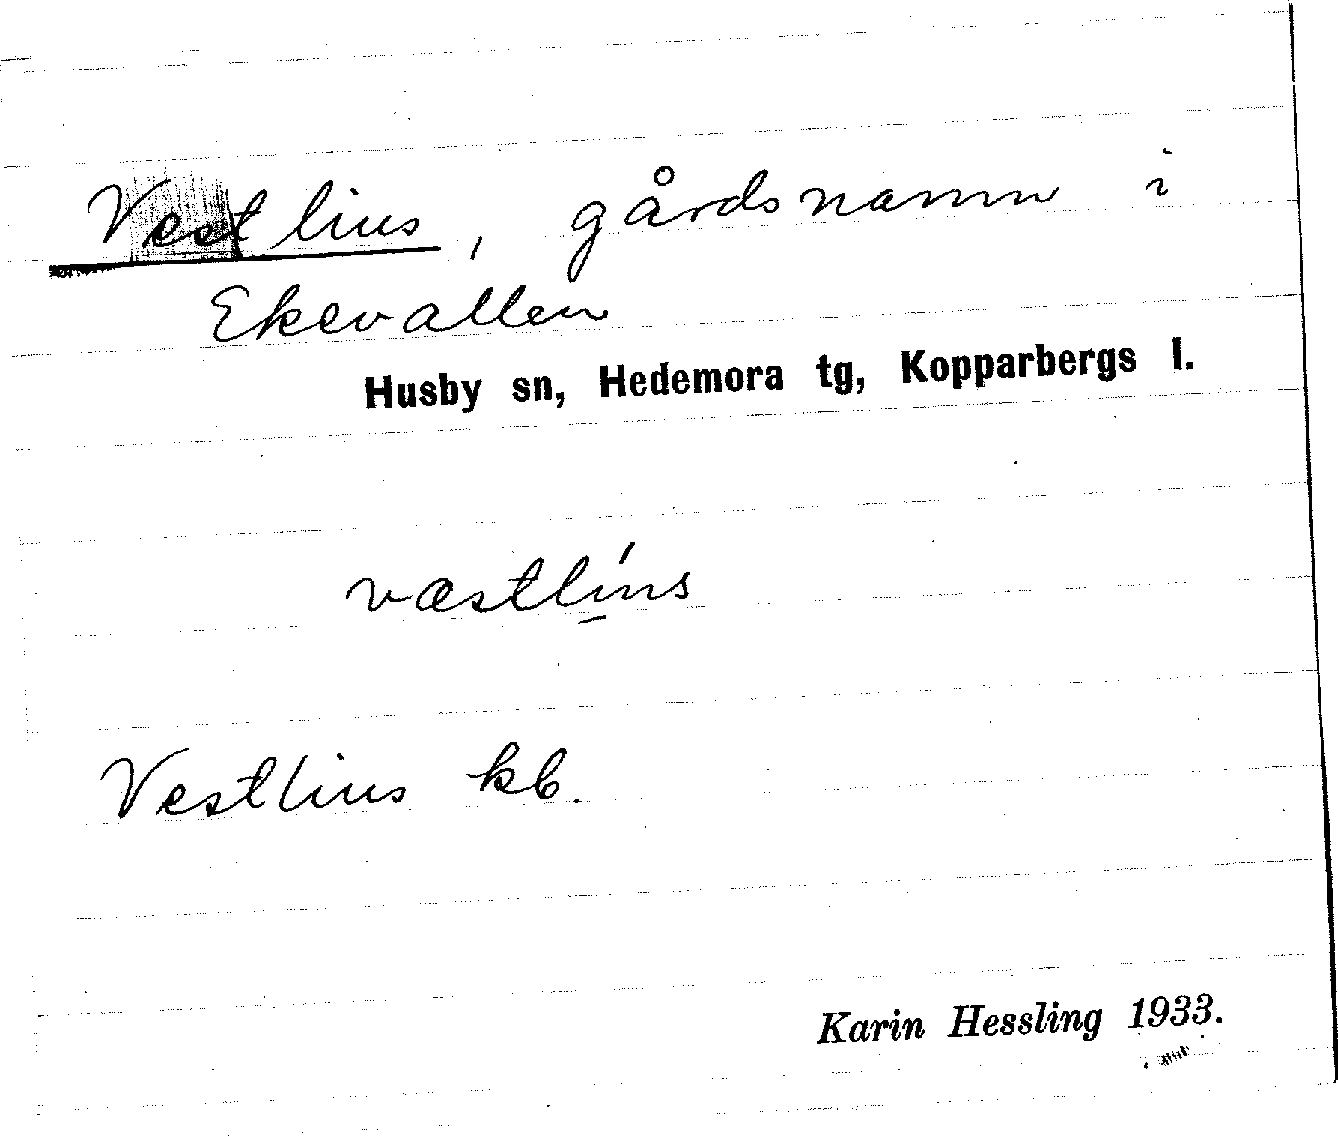 Vestlius, gårdsnamn i
Ekevallen
Husby sn, Hedemora tg, Kopparbergs l.
væstlíns
Vestlius kb.
Karin Hessling 1933.